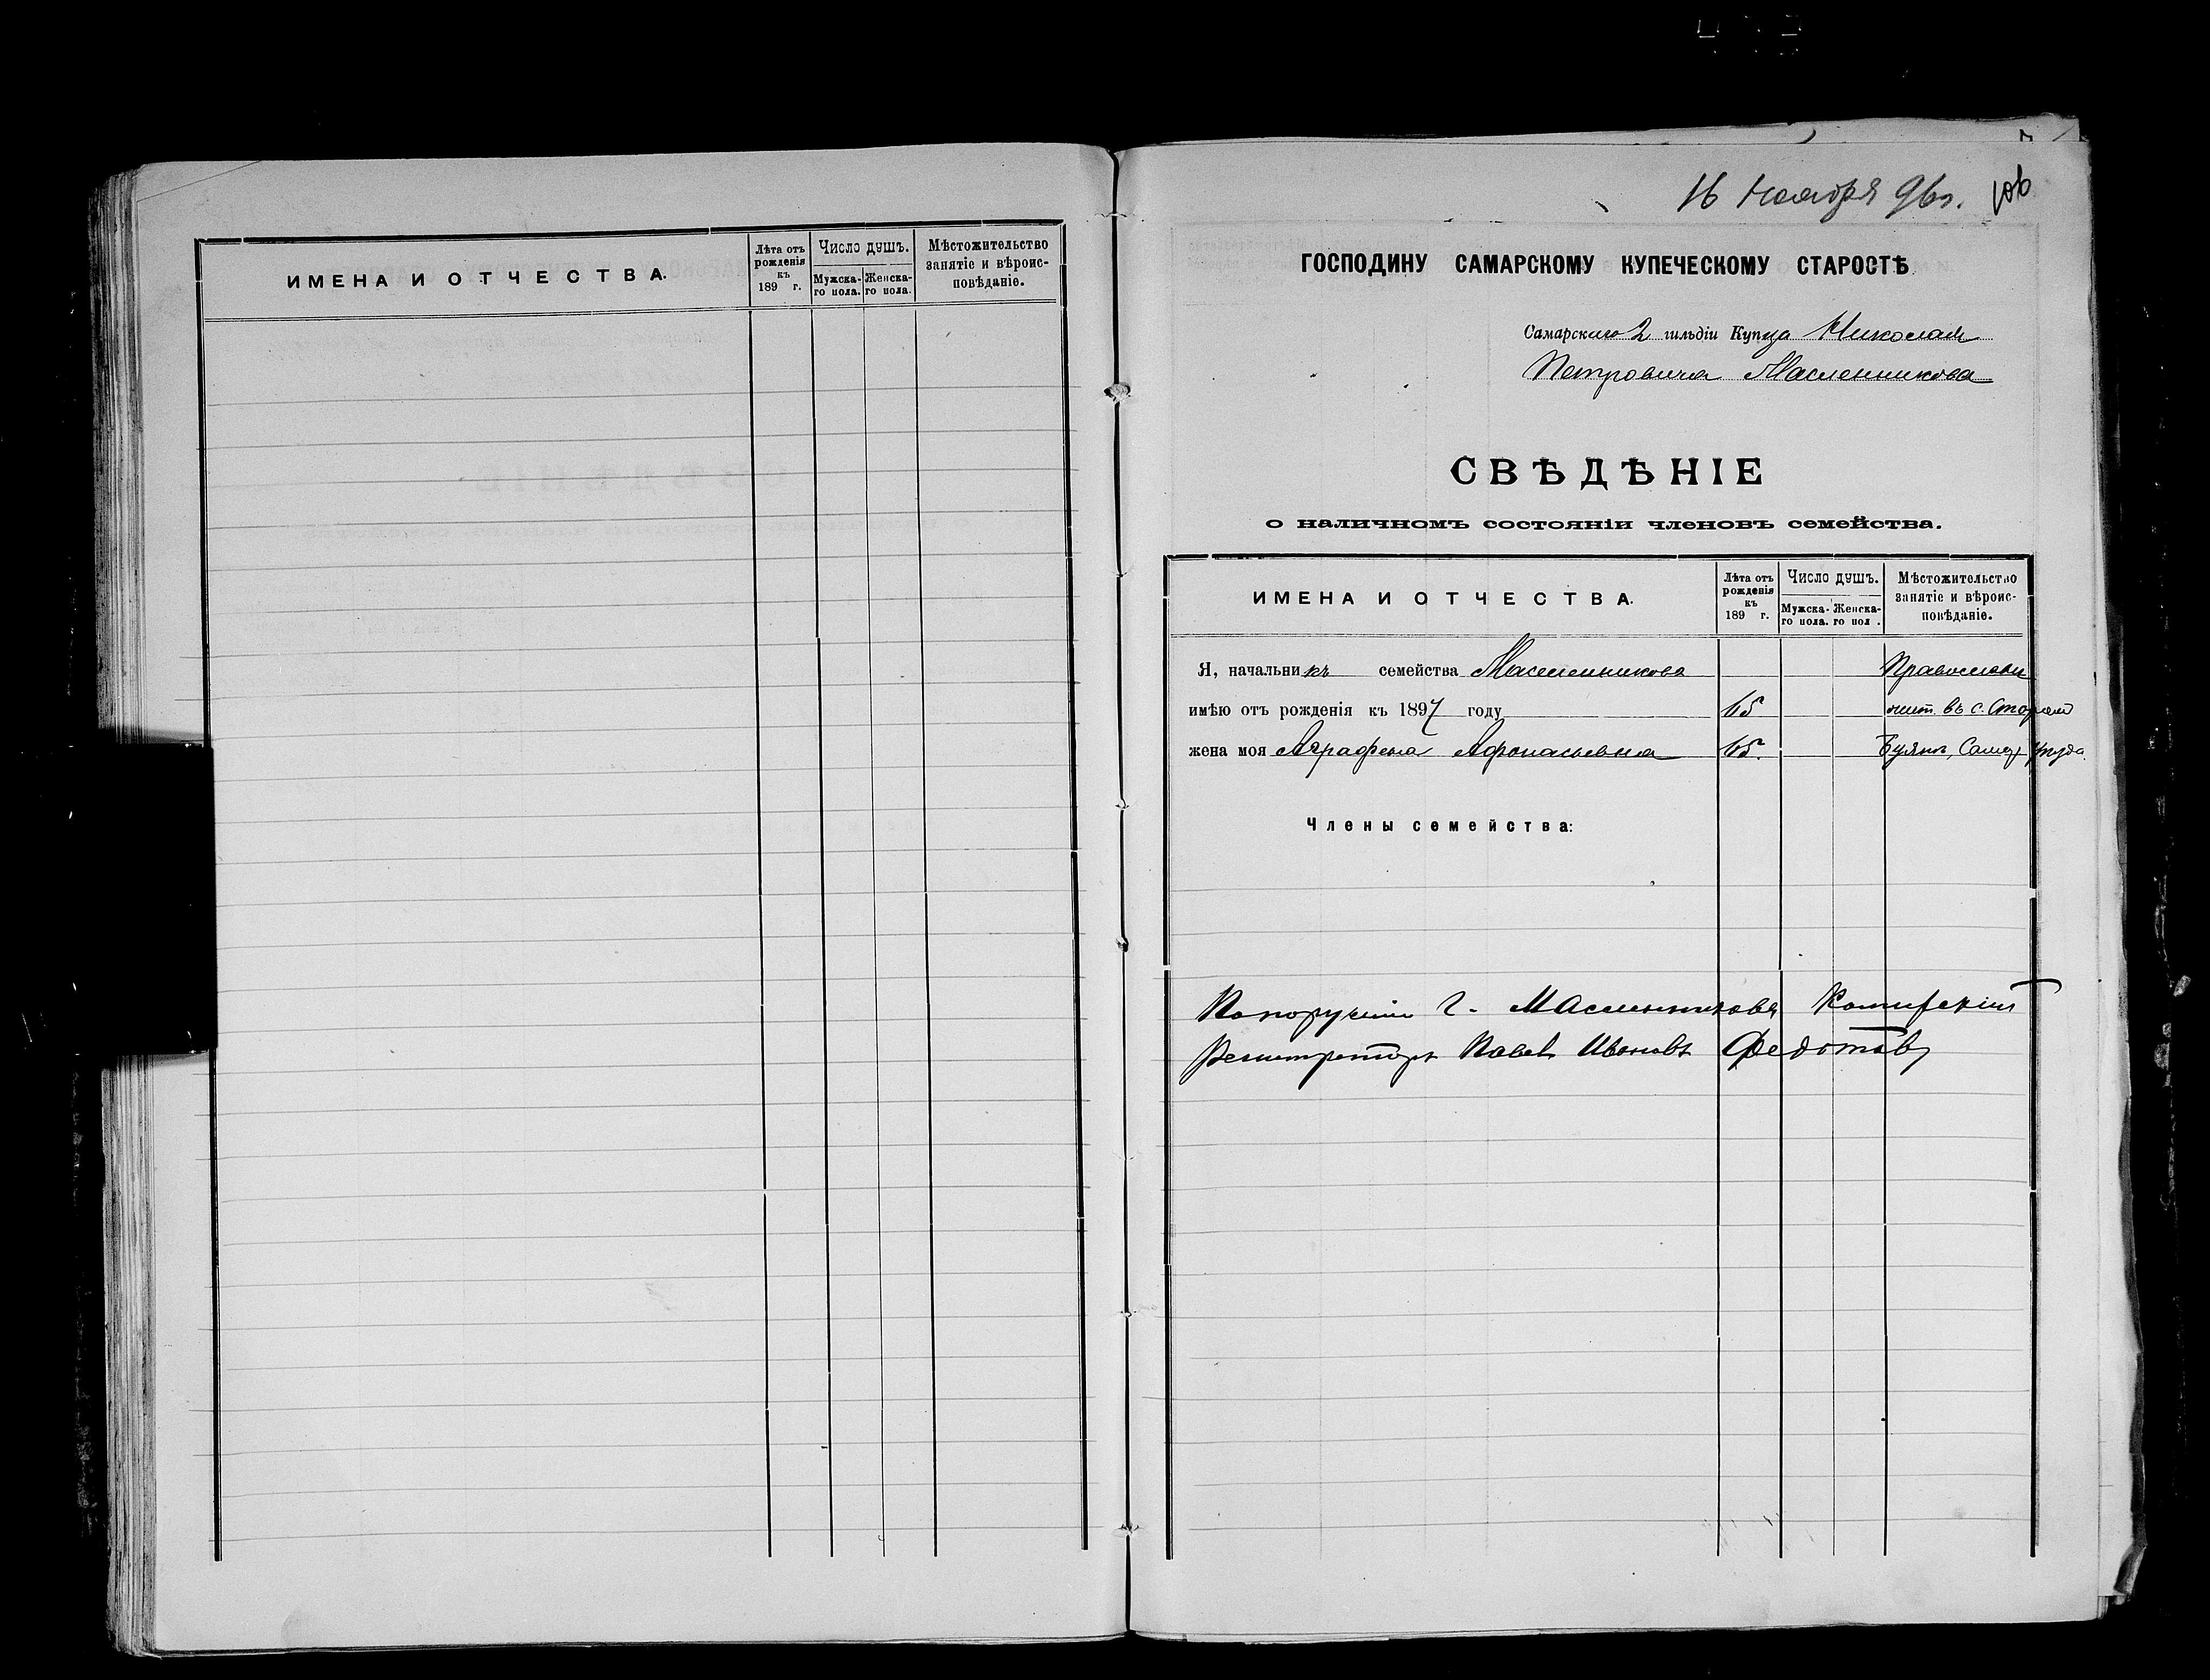 ИМЕНА И ОТЧЕСТВА.
Лѣта отъ рожденія къ 189 г.
Число душъ.
Мужска-го пола.
Женска-го пола.
Мѣстожительство занятіе и вѣроис-повѣданіе.
16 Ноября 96г.
ГОСПОДИНУ САМАРСКОМУ КУПЕЧЕСКОМУ СТАРОСТѢ
Самарскаго 2 гильдіи Купца Николая
Петровича Масленникова
СВѢДѢНІЕ
о наличномъ состояніи членовъ семейства.
ИМЕНА И ОТЧЕСТВА.
Лѣта отъ рожденія къ 189 г.
Число душъ.
Мужска-го пола.
Женска-го пол .
Мѣстожительство занятіе и вѣроис-повѣданіе.
Я, начальникъ семейства Масленникова Православн
имѣю отъ рожденія къ 1897 году 65 жит. въ с. Старом
жена моя Аграфена Афонасьевна 65. Буянѣ, Самар уѣзда.
Члены семейства:
Г. Масленникова
Регистраторъ Павелъ Ивановъ Федотовъ